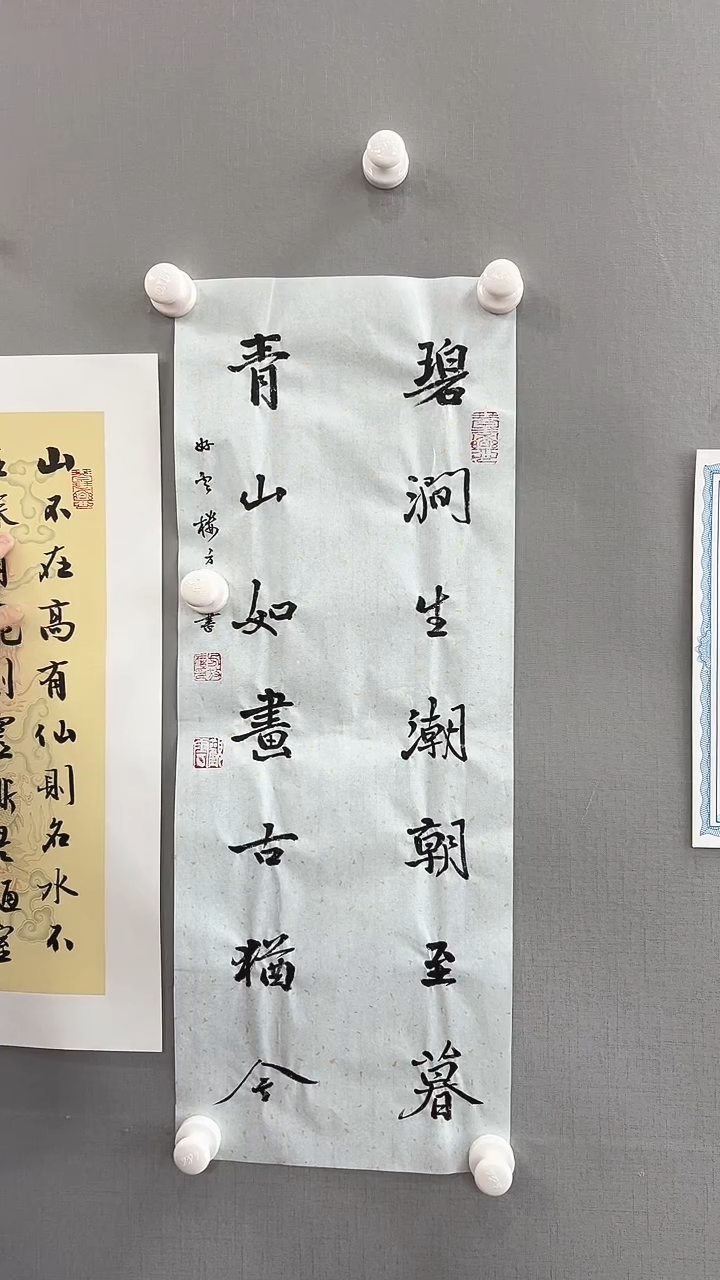 碧澗生潮朝至暮
青山如畫古猶今
好雲樓方
書
山不在高有仙則名水不